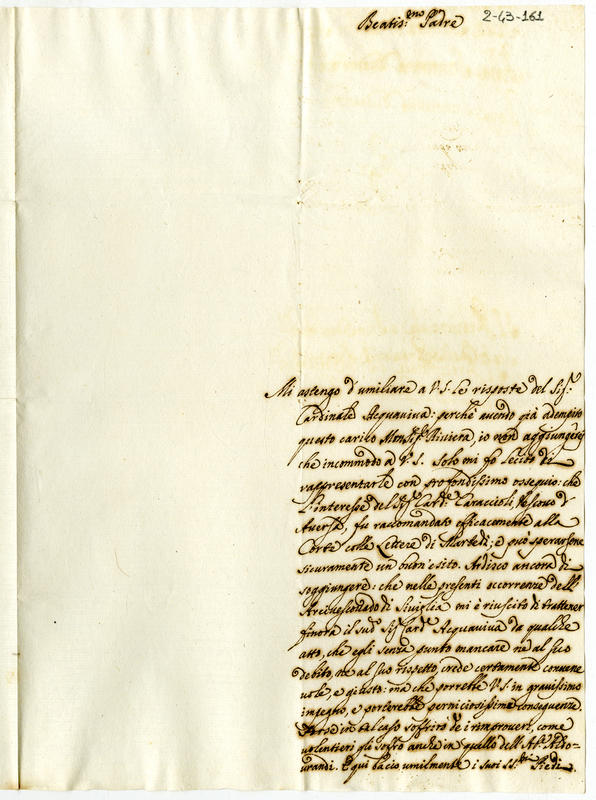 Beatis:mo Padre
2-43-161
Mi astengo d'umiliare a V.S. le risposte del Sig.r
Cardinale Acquaviva: perchè avendo già adempito
questo carico Monsig.r Riviera, io non aggiungerei
che incommodo à V.S. Solo mi fo lecito di
rappresentarle con profondissimo ossequio: che
l'interesse del Sig.r Card.e Caraccioli, Vescovo d'
Aversa, fu raccomandato efficacemente alla
Corte colle Lettere di Martedì; e può sperarsene
sicuramente un buon'esito. Ardisco ancora di
soggiungere: che nelle presenti occorrenze dell'
Arcivescovado di Siviglia mi è riuscito di trattener
finora il sud.o Sig.r Card.e Acquaviva da qualche
atto, che egli senza punto mancare nè al suo
debito, nè al suo rispetto crede certamente convene
vole, e giusto: ma che porrebbe V.S. in gravissimo
impegno, e porterebbe perniciosissime conseguenze.
in tal caso soffrirò de i rimproveri, come
volentieri gli soffro anche in quello dell'Ab.e
Equi bacio umilmente i suoi ss.mi Piedi.